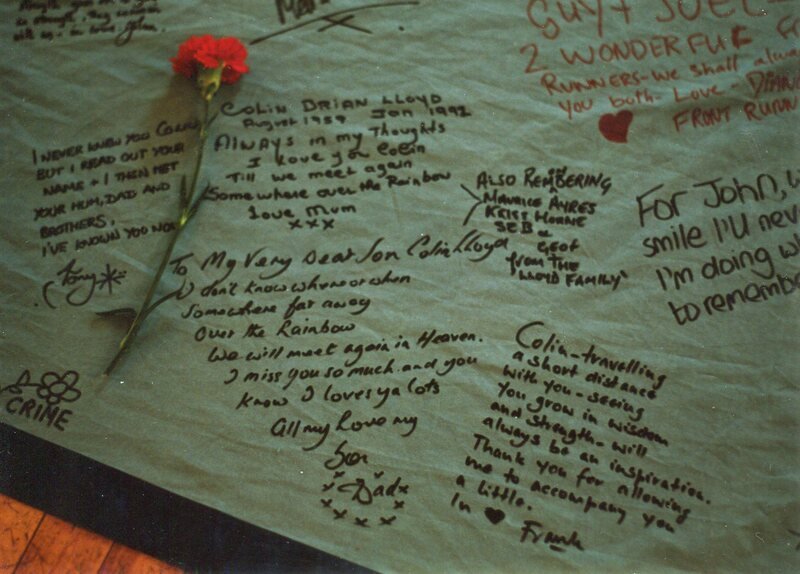 GUY + JOEL
2 WONDERFUL
RUNNERS - we shall
you both - Love -
FRONT
COLIN BRIAN LLOYD
August 1959 Jan 1992
ALWAYS in my Thoughts
I love you Colin
Till we meet again
Somewhere over the Rainbow
Love Mum
xxx
I NEVER KNEW YOU COLIN
BUT I READ OUT YOUR
NAME + I THEN MET
YOUR MUM, DAD AND
BROTHERS.
I'VE KNOWN YOU NOW
Tony
ALSO REMBERING
MAURICE AYRES
KRISS HORNE
SEB
GEOF
from THE
LLOYD FAMILY
For John,
smile I'll
I'm doing
to
To My Very Dear Son Colin Lloyd
I don't know where or when
Somewhere far away
Over the Rainbow
We will meet again in Heaven.
I miss you so much and you
know I loves ya lots
All my Love my
Son
Dad
Colin - travelling
a short distance
with you - seeing
you grow in wisdom
and strength - will
always be an inspiration.
Thank you for allowing
me to accompany you
a little.
In ♥
Frank
CRIME